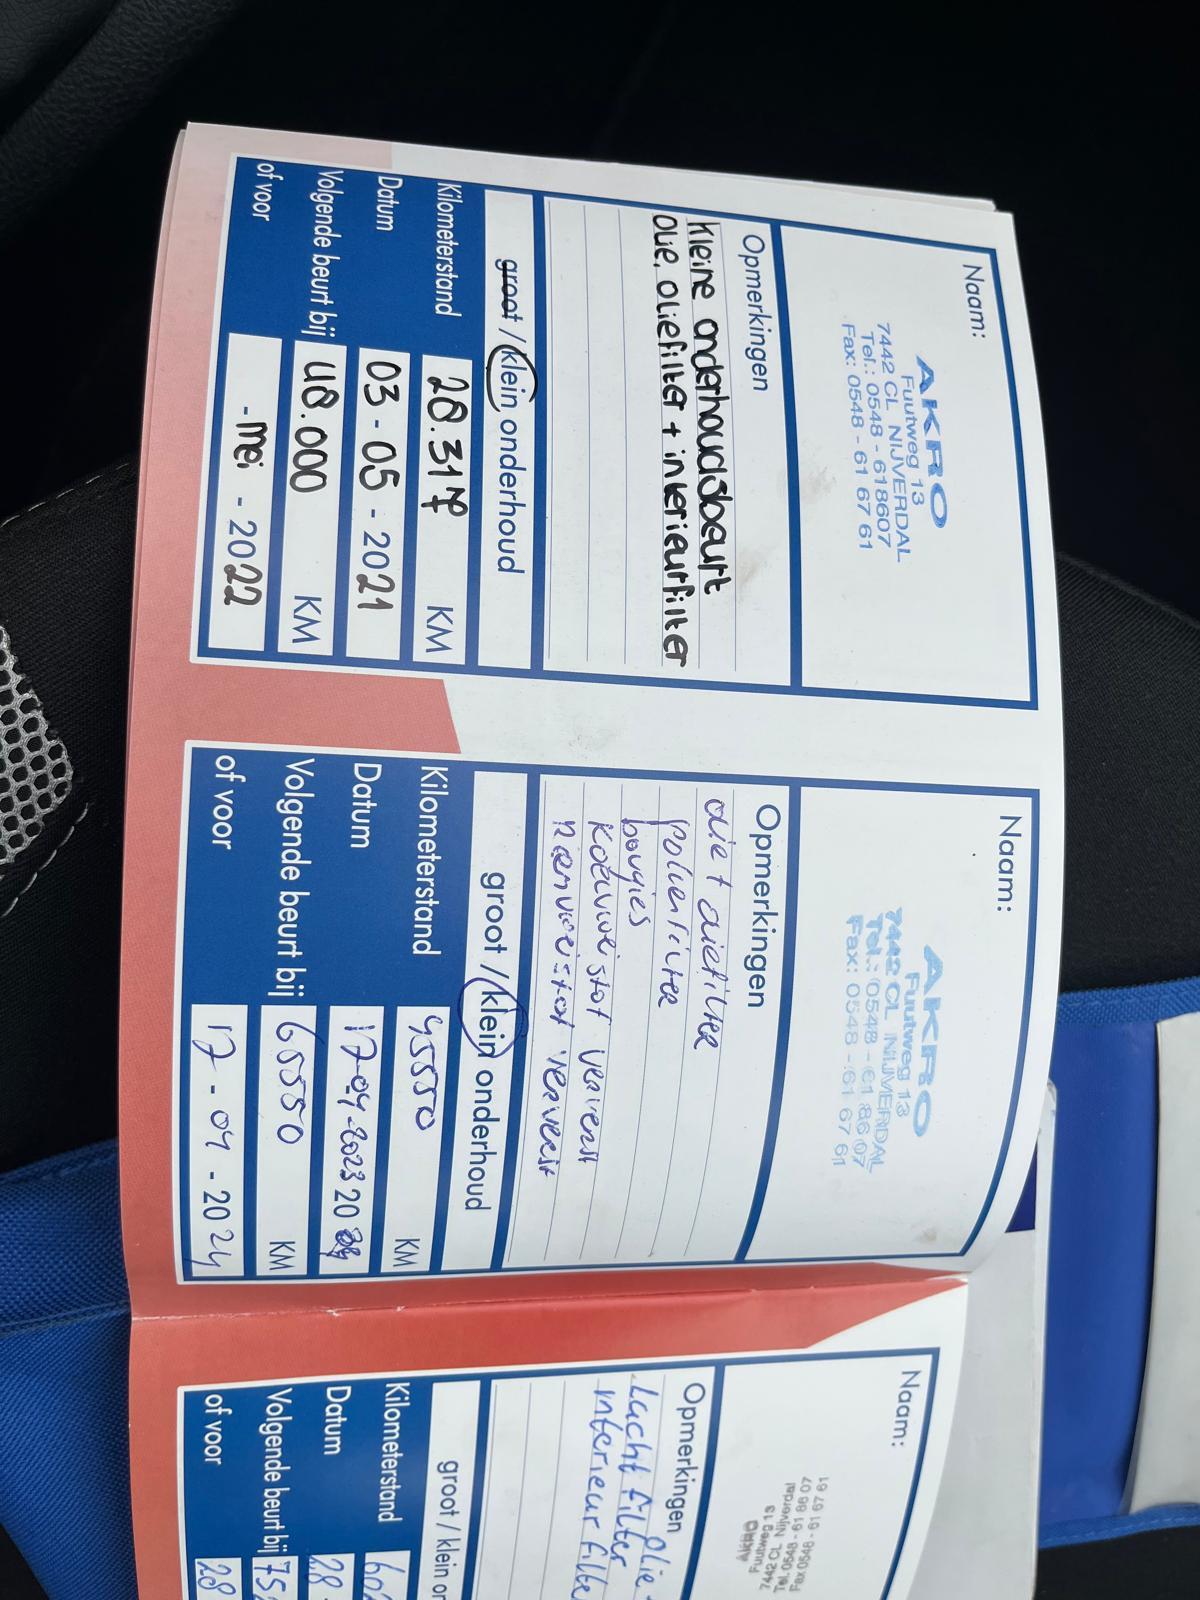 Naam:
AKRO
Fuutweg 13
7442 CL NIJVERDAL
Tel.: 0548 - 618607
Fax: 0548 - 61 67 61
Opmerkingen
kleine onderhoudsbeurt
olie, oliefilter + interieurfilter
groot / klein onderhoud
Kilometerstand 28.317 KM
Datum 03 - 05 - 2021
Volgende beurt bij 48.000 KM
of voor - mei - 2022
Naam:
AKRO
Fuutweg 13
7442 CL NIJVERDAL
Tel.: 0548 - 61 86 07
Fax: 0548 - 61 67 61
Opmerkingen
olie + oliefilter
pollenfilter
bougies
koelvloeistof ververst
Remvloeistof ververst
groot / klein onderhoud
Kilometerstand 45550 KM
Datum 17-04-2023 20
Volgende beurt bij 65550 KM
of voor 17 - 04 - 2024
Naam:
AKRO
Fuutweg 13
7442 CL Nijverdal
Tel. 0548 - 61 86 07
Fax 0548 - 61 67 61
Opmerkingen
Lucht filter olie
interieur filte
groot / klein on
Kilometerstand 60
Datum 28
Volgende beurt bij 75
of voor 28